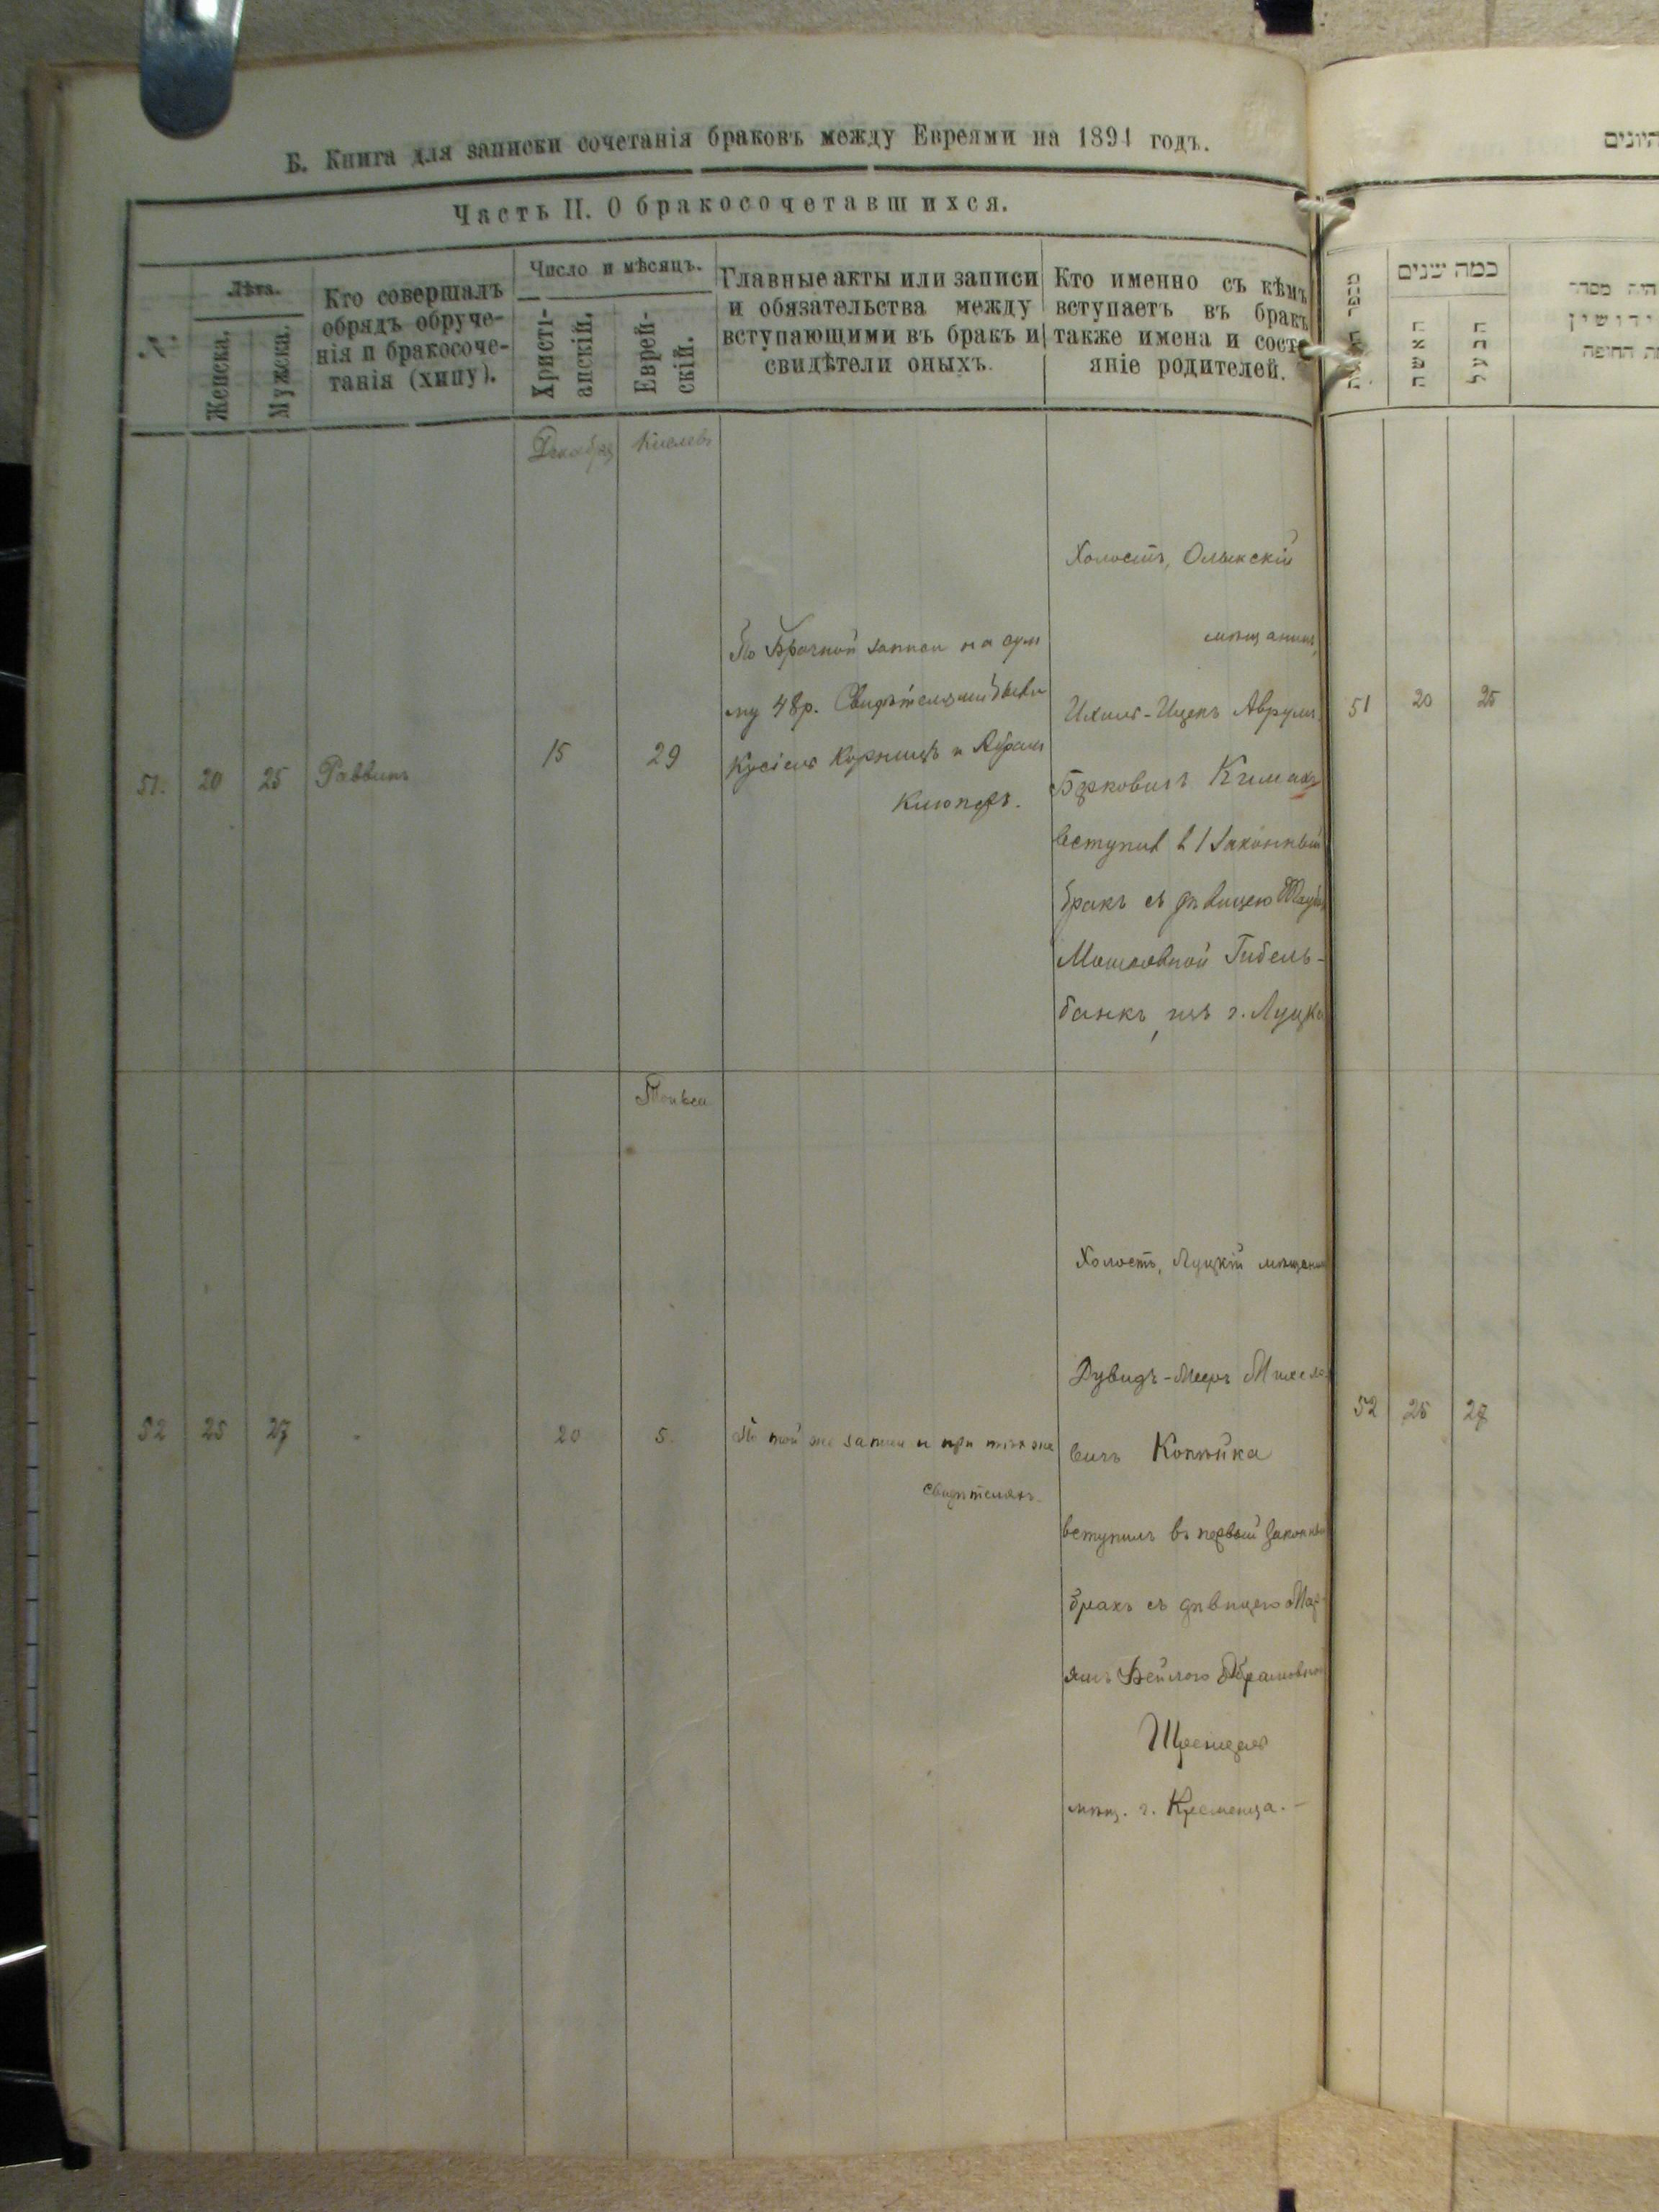 Б. Книга для записки сочетанія браковъ между Евреями на 1894 годъ.
היונים
Часть II. О бракосочетавшихся.
№
Лѣта.
Женска.
Мужска.
Кто совершалъ
обрядъ обруче-
нія п бракосоче-
танія (хипу).
Число и мѣсяцъ.
Христі-
анскій.
Еврей-
скій.
Главные акты или записи
и обязательства между
вступающими въ бракъ и
свидѣтели оныхъ.
Кто именно съ кѣмъ
вступаетъ въ бракъ
также имена и состо
яніе родителей.
כמה שנים
האשה
הבעל
היה מסדר
ידושין
ת החופה
Декабрь
Кислевъ
51.
20
25
Раввинъ
15
29
По Брачной записи на сум
му 48р. Свидѣтелями были
Кусіель и Абрамъ
Холостъ, Олыкскій
мѣщанинъ,
Ихиль-Ицекъ Аврумъ
Берковичъ Кимахъ
вступил в 1 законный
бракъ съ дѣвицею
Мошковной Гибель-
банкъ, изъ г. Луцка
51
20
25
Тевеса
52
25
27
20
5.
По той же записи и при тѣхъ же
свидѣтеляхъ.
Холостъ, Луцкій мѣщанин
Дувидъ-Мееръ Микеле
вичъ Копѣйка
вступилъ въ первый законный
бракъ съ дѣвицею Мар
ямъ Бейлою Абрамовной
мѣщ. г. Кременца. –
52
25
27